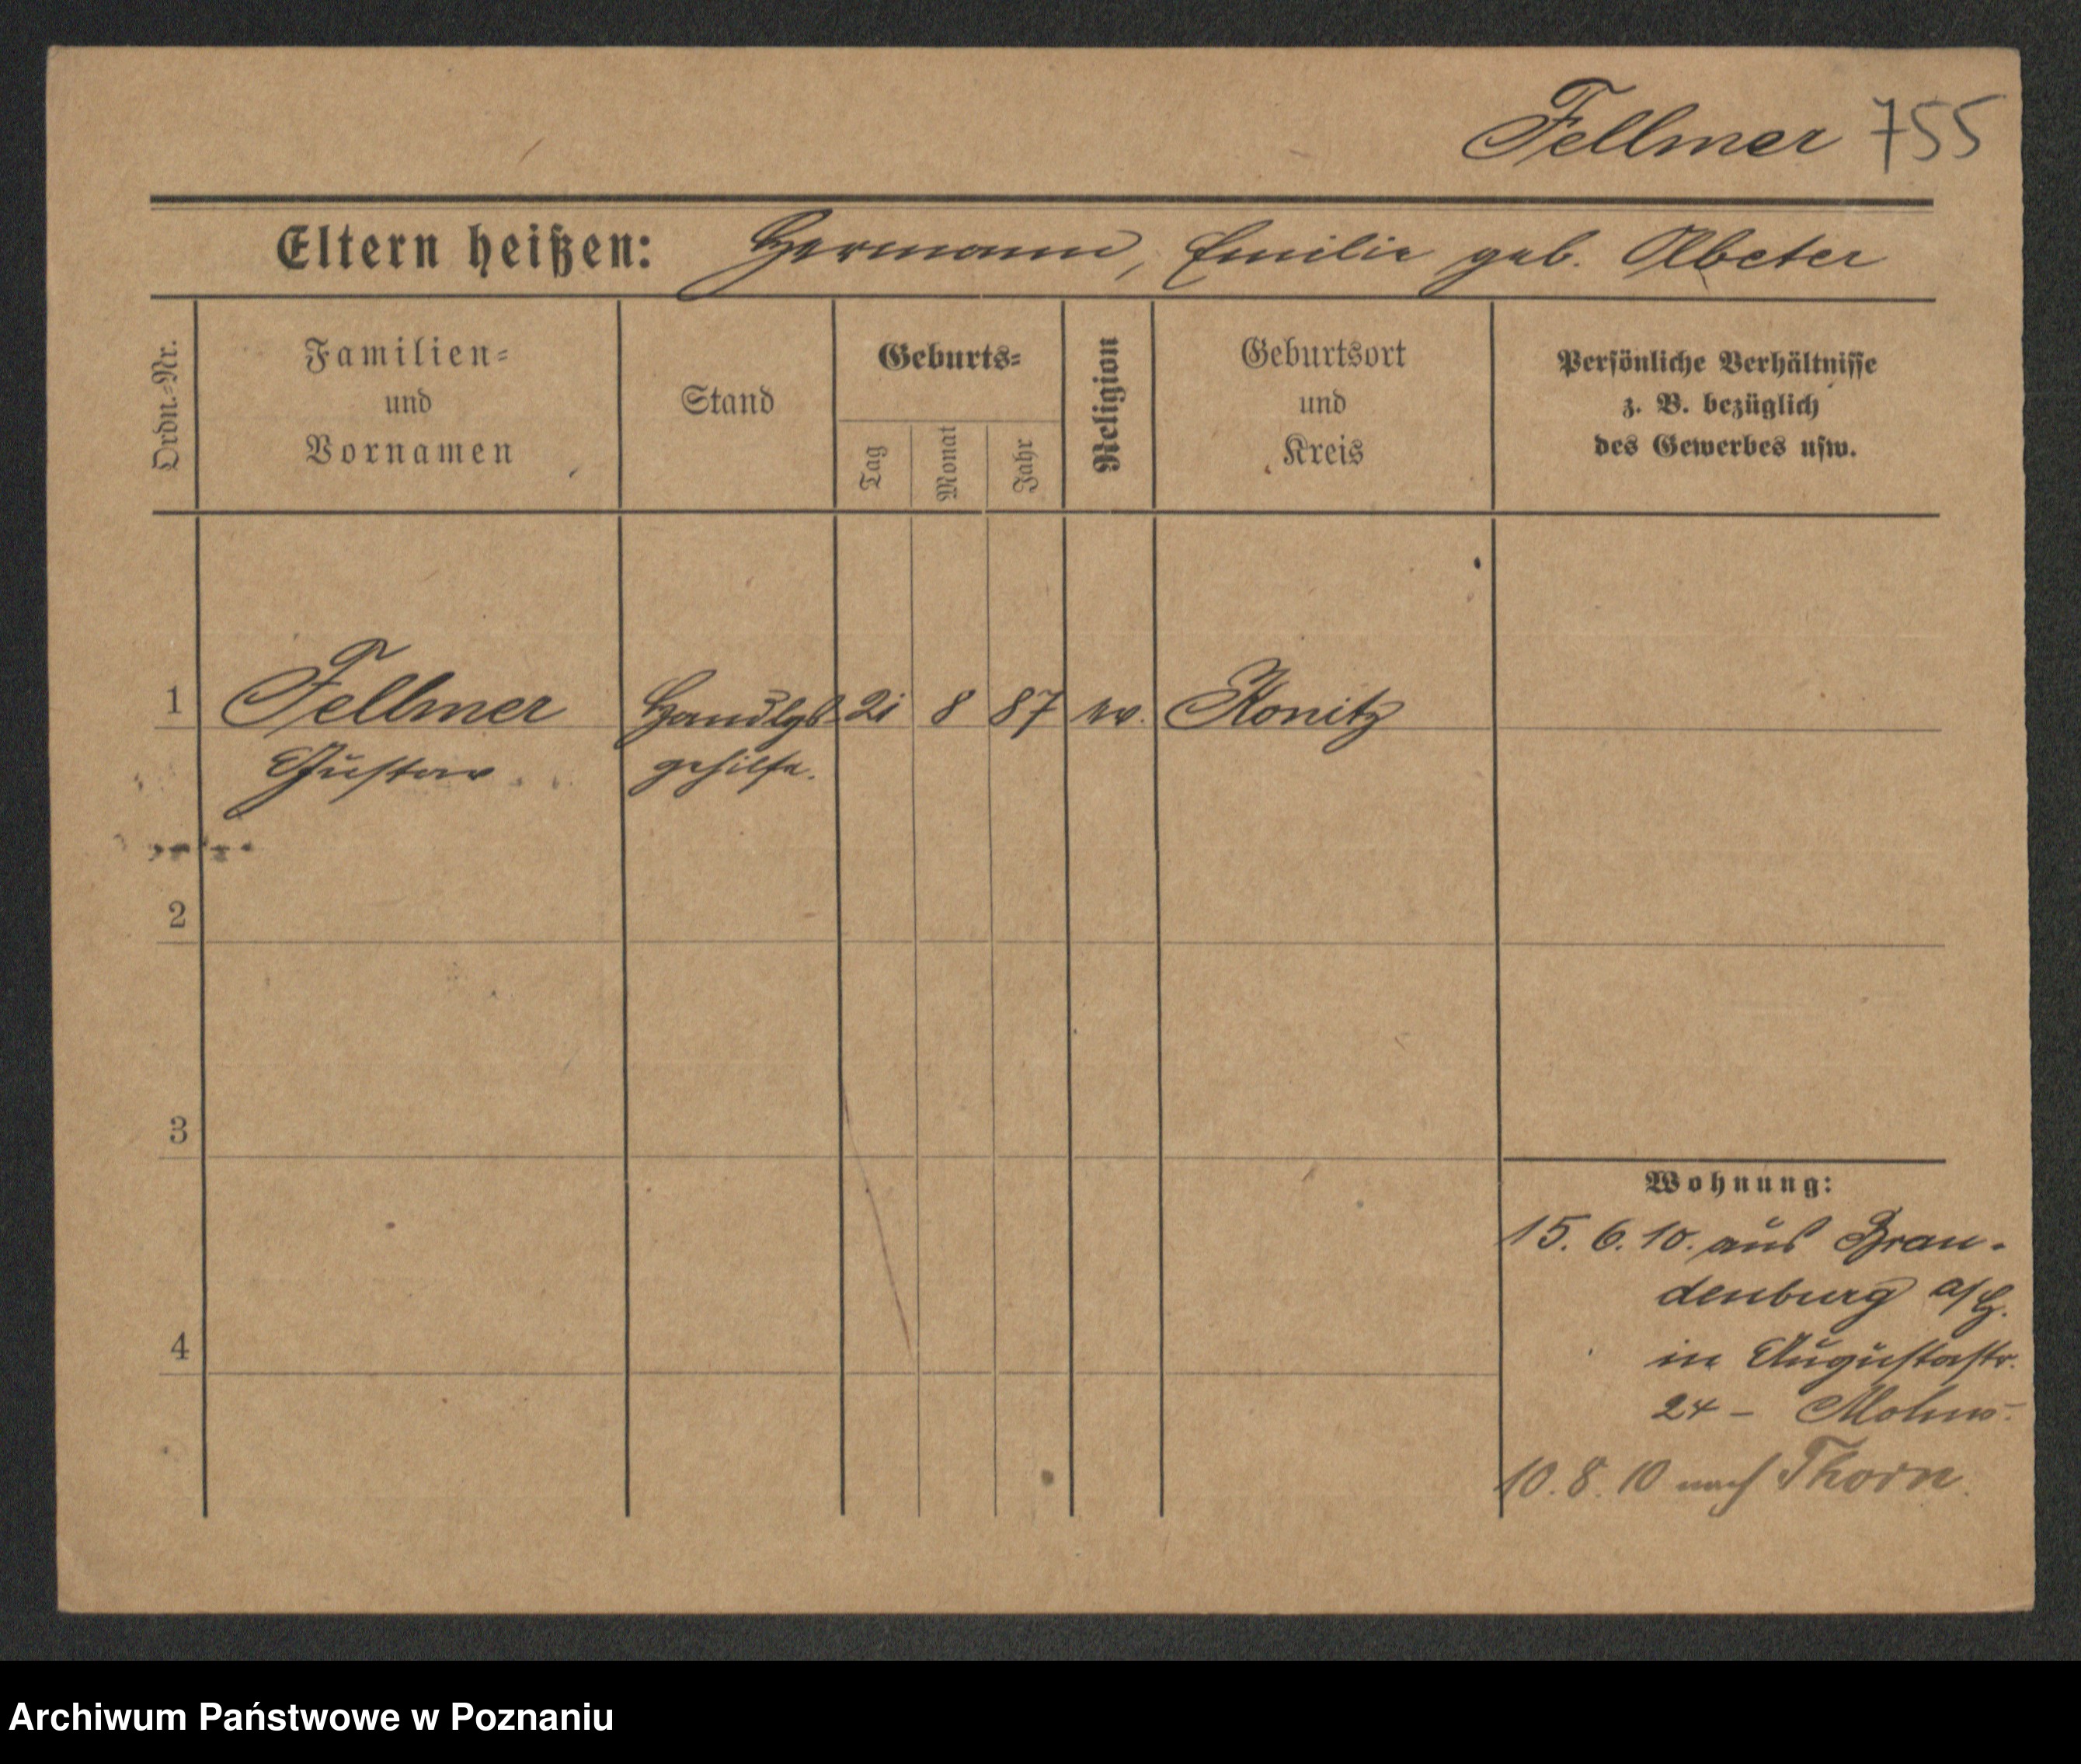 Fellmer 755
Eltern heißen: Hermann, Emilie geb. Albeter
Ordn.-Nr.
Familien-
und
Vornamen
Stand
Geburts-
Tag
Monat
Jahr
Religion
Geburtsort
und
Kreis
Persönliche Verhältnisse
z. B. bezüglich
des Gewerbes usw.
1 Fellmer Handlgs 21 8 87 ev. Konitz
Gustav gehilfe.
2
3
4
Wohnung:
15. 6. 10. aus Bran-
denburg a/H.
in Augustastr.
24 –
10. 8. 10 nach Thorn.
Archiwum Państwowe w Poznaniu